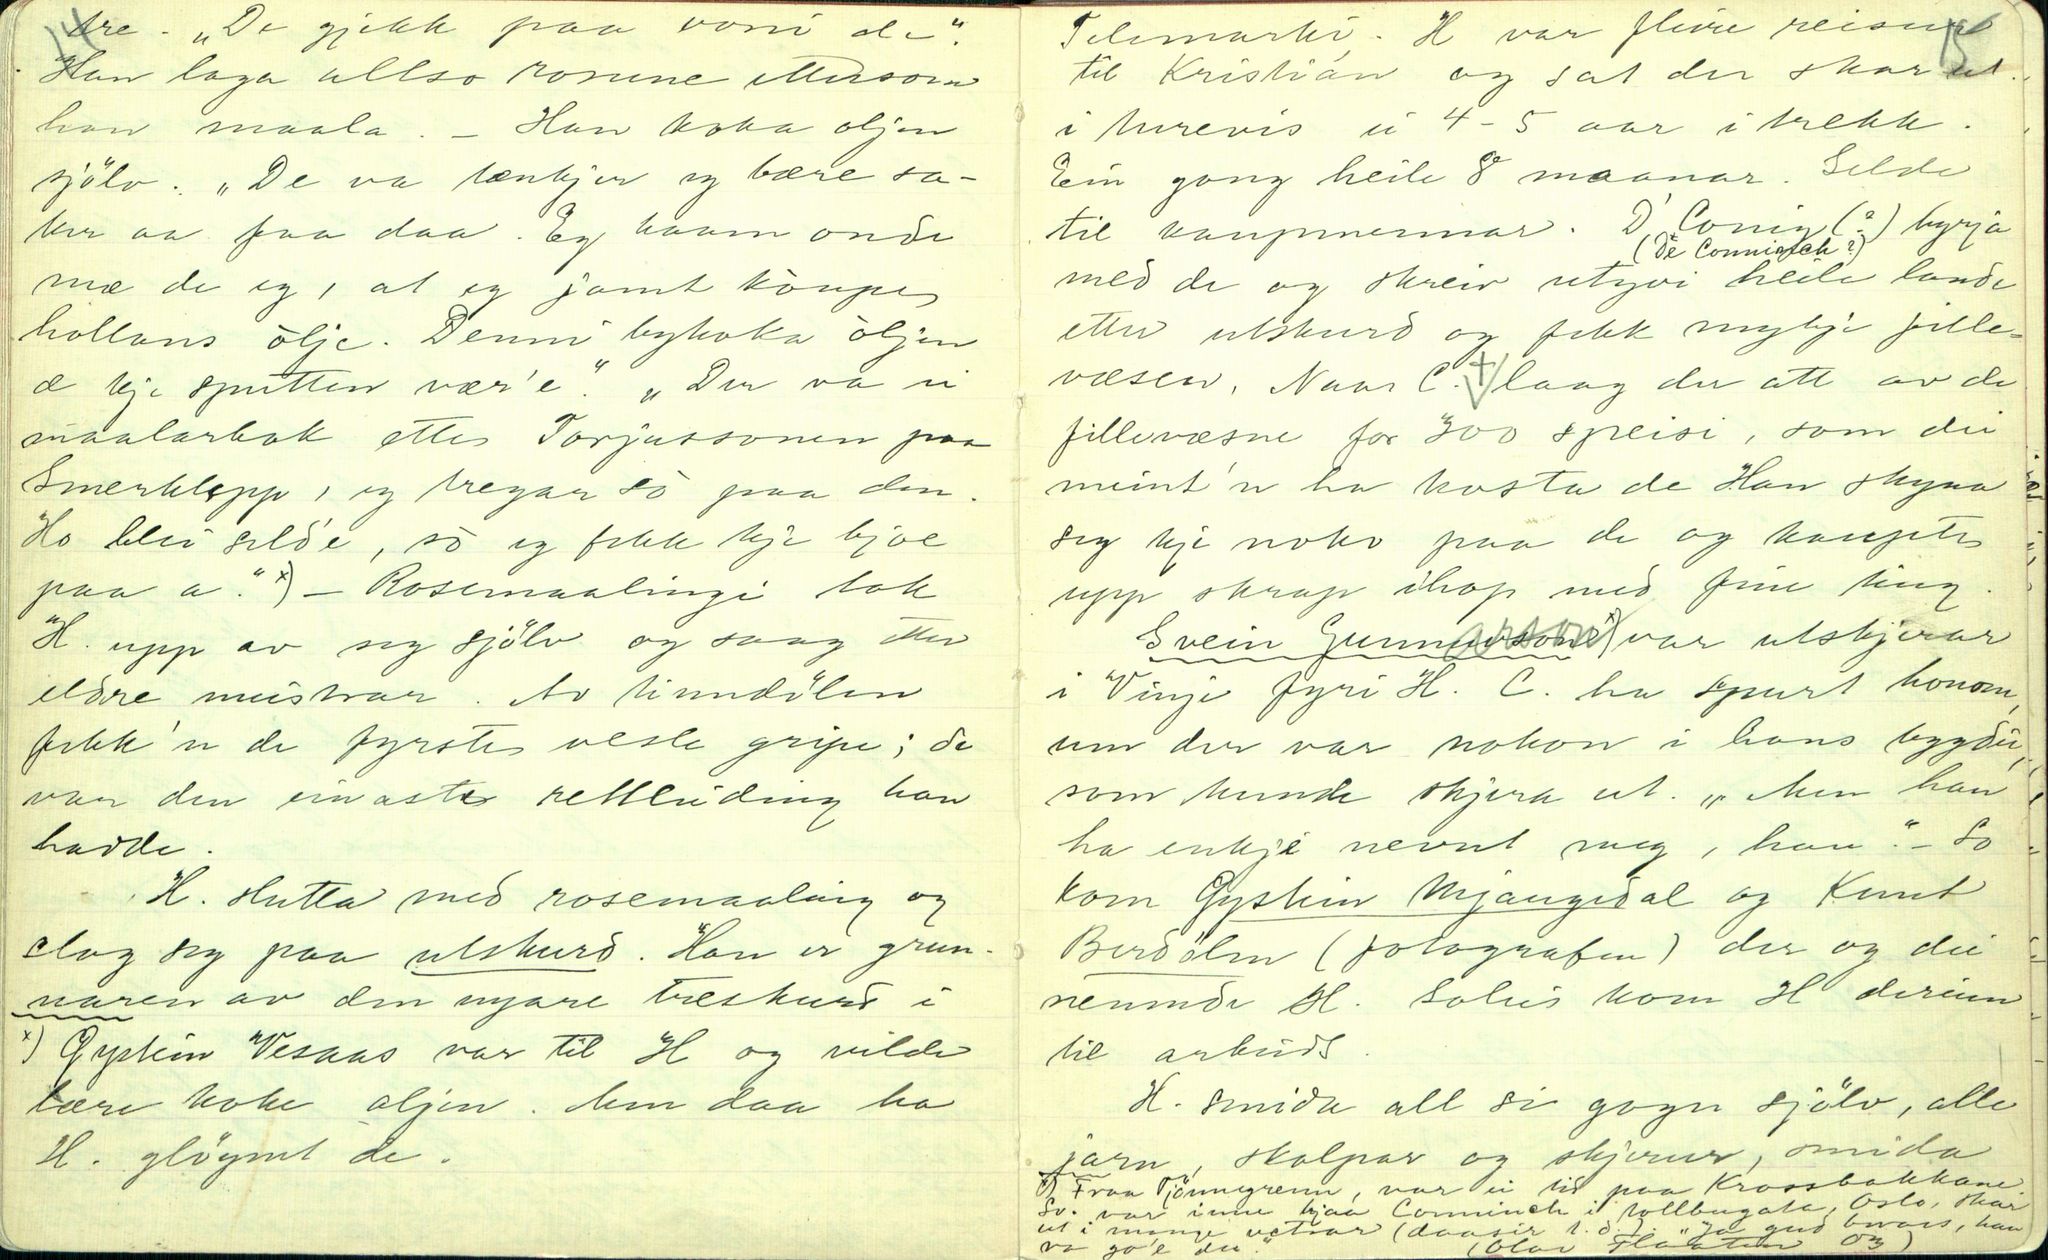 14
dre. „De gjekk paa voni de".
Han laga allso rosune ettersom
han maala. – Han koka oljen
sjölv. „De va tænkjer eg bære sa-
ker aa faa daa. Eg kaam onde
mæ de eg, at eg jamt köupes
hollans ölje. Denni bykoka öljen
æ kje sputten vær'e." „Der va ei
maalarbok ettes Torjussonen paa
Smerklepp, eg tregar sö paa den.
Ho blei seld'e, sö eg fekk kje kjöe
paa a." x) – Rosemaalingi tok
H. upp av seg sjölv og saag etter
eldre meistrar. Av tinndölen
fekk'n de fyrste vesle gripe; de
var den einaste rettleiding han
hadde.
H. slutta med rosemaaling og
slog seg paa utskurd. Han er grun-
naren av den nyare treskurd i
x) Gystein Vesaas var til H og vilde
lære koke oljen. Men daa ha
H. glöymt de.
15
Telemarki. H var fleire reisur
til Kristián og sat der skar ut
i turevis ei 4-5 aar i trekk.
Ein gong heile 8 maanar. Selde
til kaupmennar. D' Coning (?) byrja
(De Conninck?)
med de og skreiv utyvi heile lande
etter utskurd og fekk mykje fille-
væsen. Naar C. + laag der att av de
fillevæsne for 300 speisi, som dei
meint'n ha kosta de Han skyna
seg kje noko paa de og kaupte
upp skrap ihop med fine ting.
Svein Gunnarson x) var utskjerar
i Vinje fyri H. C. ha spurt honom,
um der var nokon i hans bygdir,
som kunde skjera ut. „Men han
ha enkje nevnt meg, han". – So
kom Gystein Mjaugedal og Knut
Berdölen (fotografen) der og dei
nemnde H. Soleis kom H derinn
til arbeids.
H. smida all si gogn sjölv, alle
jarn, skolpar og skjerur, smida
x) Fraa Tjönnegrenn, var ei tid paa Krossbakkane
Sv. var inne hjaa Conninck i tollbugata, Oslo, skar
ut i mange vetrar (daasir t.d.). „Ja gud bevars, han
va go'e dei." (Olav Flaaten Og)